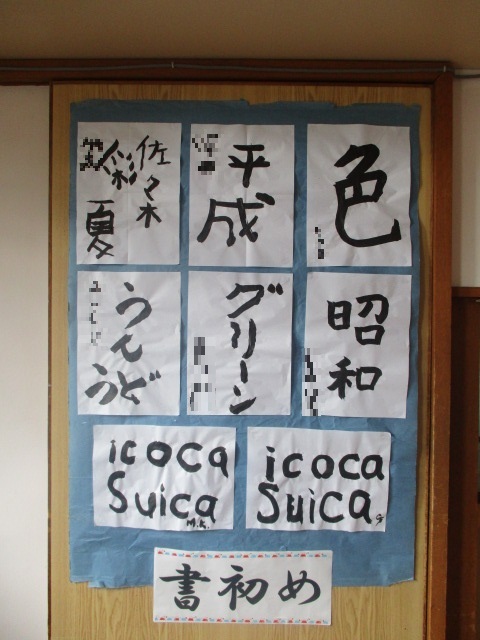 色
平成
佐々木
彩夏
昭和
グリーン
うんど
う
icoca
Suica
M.K.
icoca
Suica
書初め